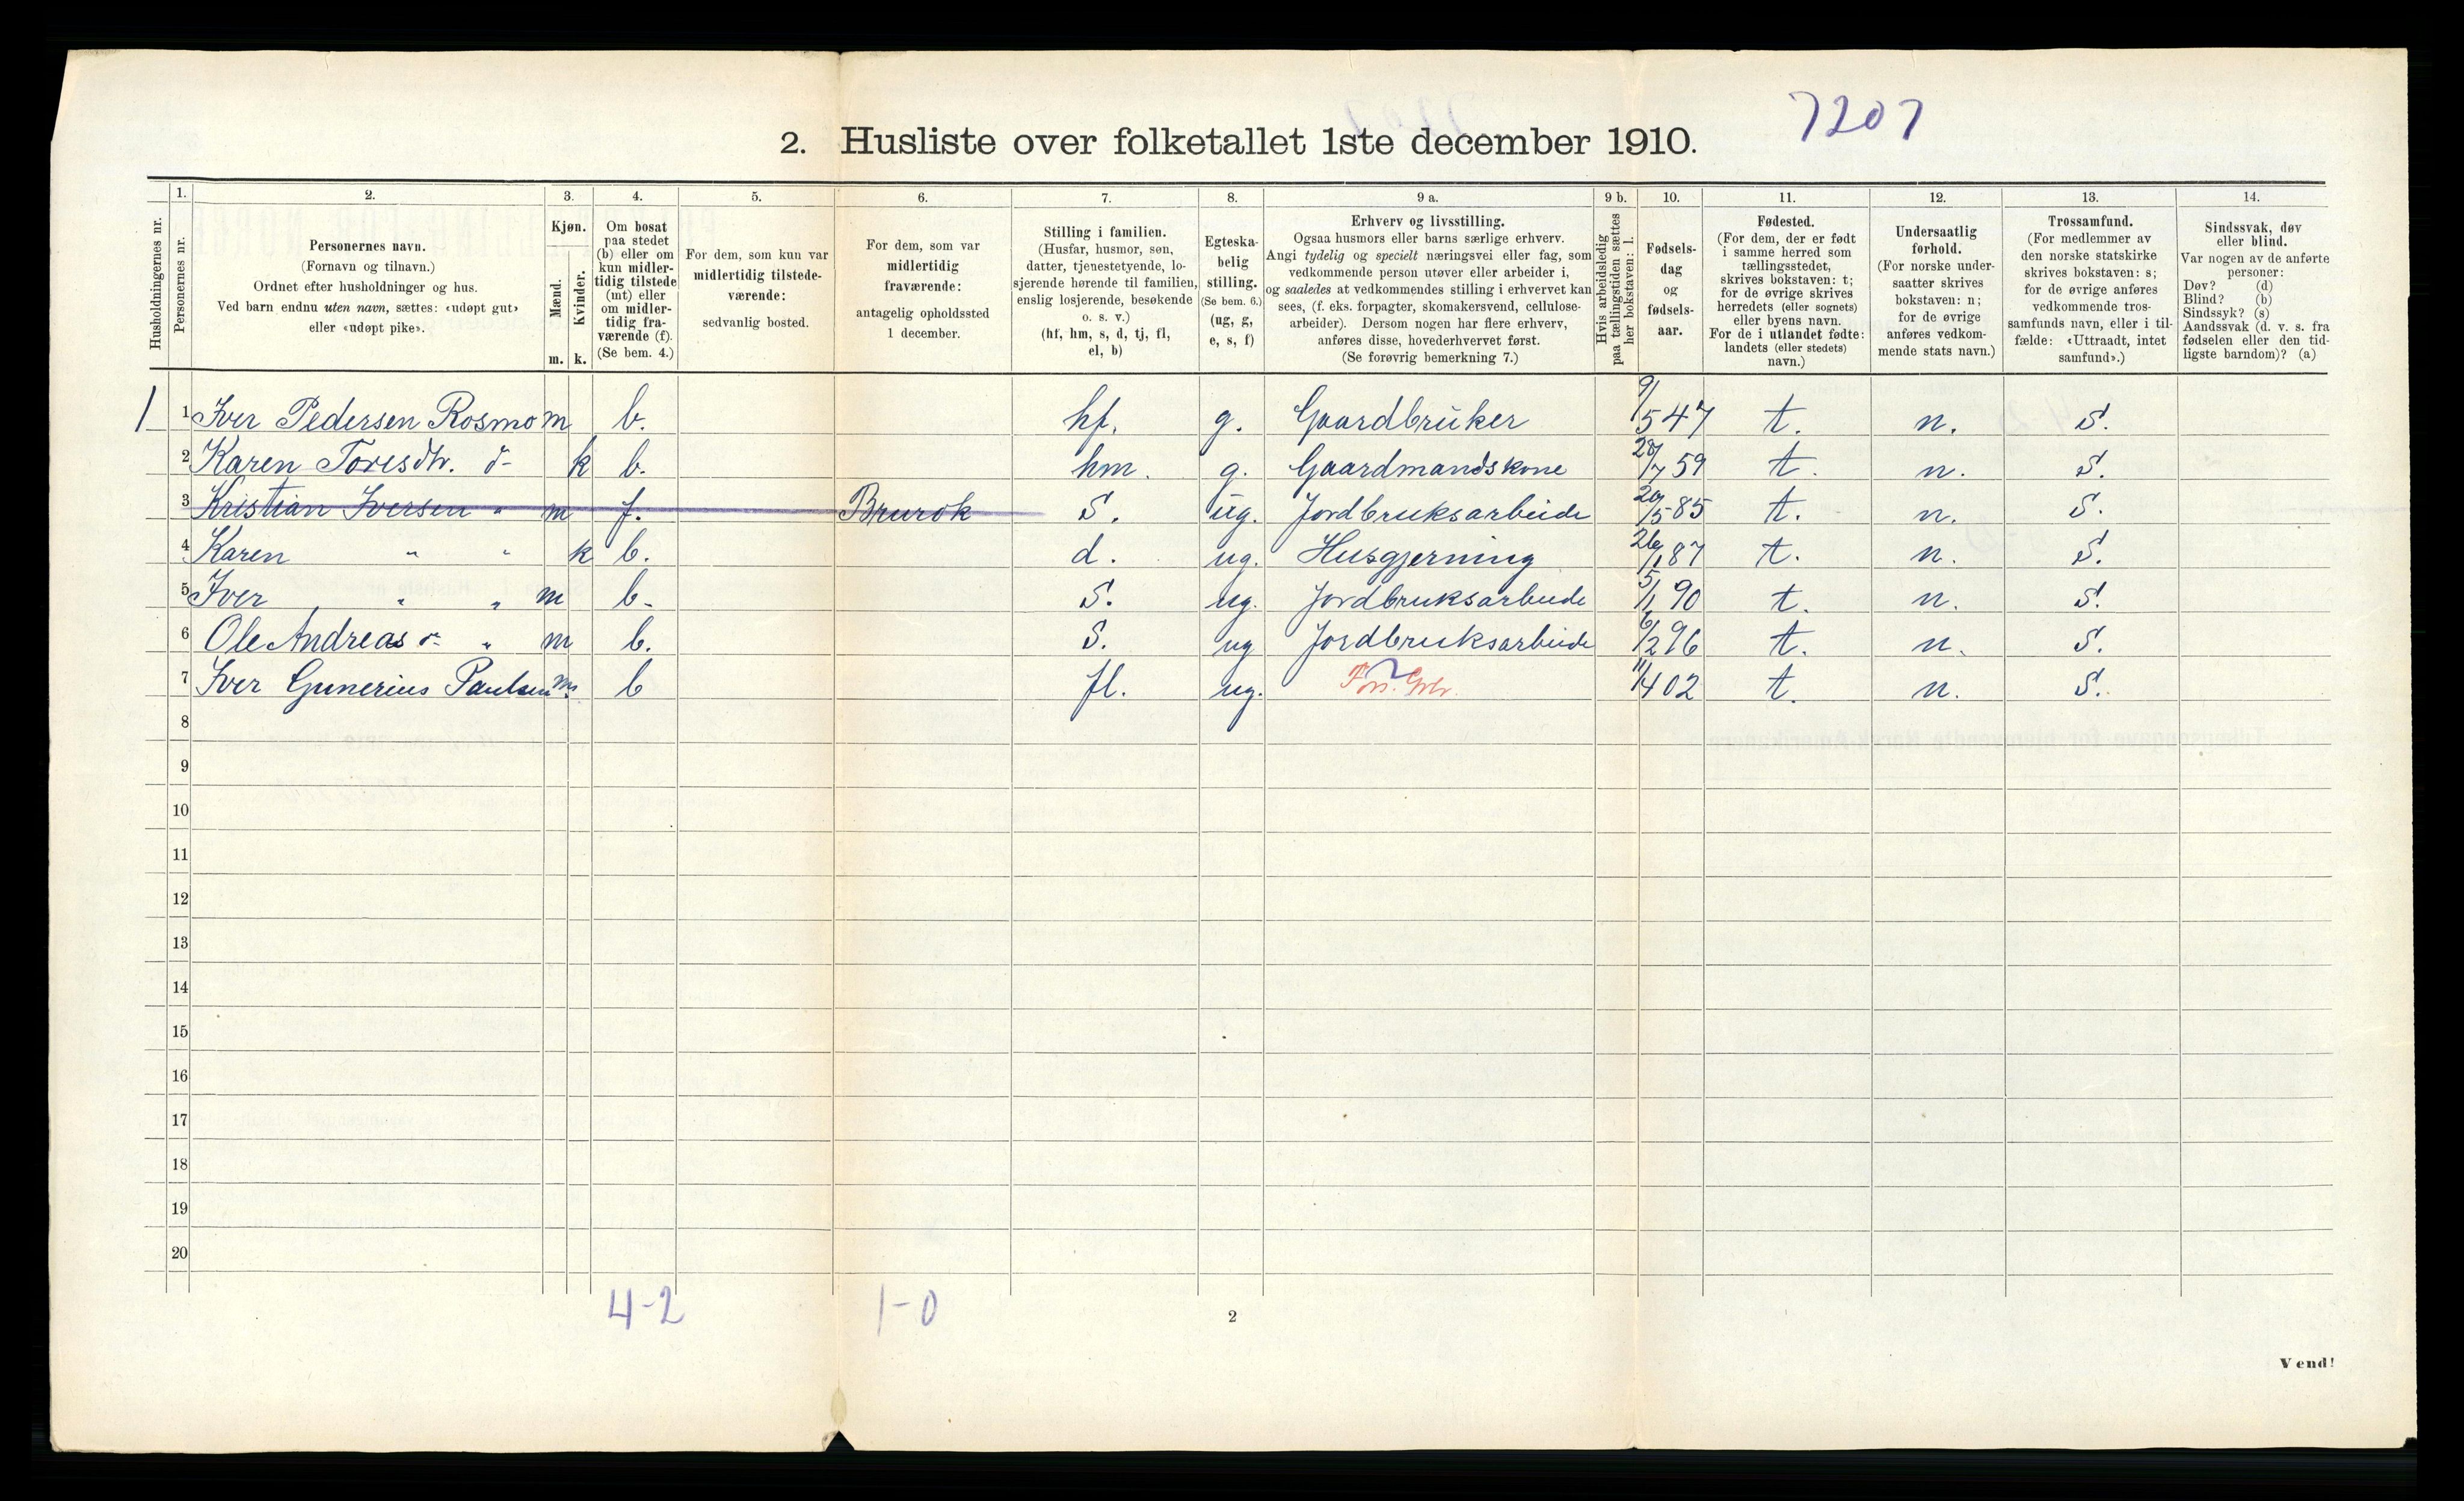 7207
2. Husliste over folketallet 1ste december 1910.
Husholdningernes nr.
1. Personernes nr.
2. Personernes navn.
(Fornavn og tilnavn.)
Ordnet efter husholdninger og hus.
Ved barn endnu uten navn, sættes: «udøpt gut»
eller «udøpt pike».
3. Kjøn.
Mænd. m.
Kvinder. k.
4. Om bosat
paa stedet
(b) eller om
kun midler-
tidig tilstede
(mt) eller
om midler-
tidig fra-
værende (f).
(Se bem. 4.)
5. For dem, som kun var
midlertidig tilstede-
værende:
sedvanlig bosted.
6. For dem, som var
midlertidig
fraværende:
antagelig opholdssted
1 december.
7. Stilling i familien.
(Husfar, husmor, søn,
datter, tjenestetyende, lo-
sjerende hørende til familien,
enslig losjerende, besøkende
o. s. v.)
(hf, hm, s, d, tj, fl,
el, b)
8. Egteska-
belig
stilling.
(Se bem. 6.)
(ug, g,
e, s, f)
9 a. Erhverv og livsstilling.
Ogsaa husmors eller barns særlige erhverv.
Angi tydelig og specielt næringsvei eller fag, som
vedkommende person utøver eller arbeider i,
og saaledes at vedkommendes stilling i erhvervet kan
sees, (f. eks. forpagter, skomakersvend, cellulose-
arbeider). Dersom nogen har flere erhverv,
anføres disse, hovederhvervet først.
(Se forøvrig bemerkning 7.)
9 b. Hvis arbeidsledig
paa tællingstiden sættes
her bokstaven: l.
10. Fødsels-
dag
og
fødsels-
aar.
11. Fødested.
(For dem, der er født
i samme herred som
tællingsstedet,
skrives bokstaven: t;
for de øvrige skrives
herredets (eller sognets)
eller byens navn.
For de i utlandet fødte:
landets (eller stedets)
navn.)
12. Undersaatlig
forhold.
(For norske under-
saatter skrives
bokstaven: n;
for de øvrige
anføres vedkom-
mende stats navn.)
13. Trossamfund.
(For medlemmer av
den norske statskirke
skrives bokstaven: s;
for de øvrige anføres
vedkommende tros-
samfunds navn, eller i til-
fælde: «Uttraadt, intet
samfund».)
14. Sindssvak, døv
eller blind.
Var nogen av de anførte
personer:
Døv? (d)
Blind? (b)
Sindssyk? (s)
Aandssvak (d. v. s. fra
fødselen eller den tid-
ligste barndom)? (a)
1 1 Iver Pedersen Rosmo m b. hf. g. Gaardbruker 9/5 47 t. n. S.
2 Karen Toresdtr. d- k b. hm. g. Gaardmandskone 28/7 59 t. n. S.
3 Kristian Iversen " m f. Brurok S. ug. Jordbruksarbeide 20/5 85 t. n. S.
4 Karen " " k b. d. ug. Husgjerning 26/1 87 t. n. S.
5 Iver " " m b. S. ug. Jordbruksarbeide 5/1 90 t. n. S.
6 Ole Andreas d- " m b. S. ug Jordbruksarbeide 6/2 96 t. n. S.
7 Iver Gunerius Paulsen m. b fl. ug. 11/4 02 t. n. S.
8
9
10
11
12
13
14
15
16
17
18
19
20
4-2 1-0
2
Vend!